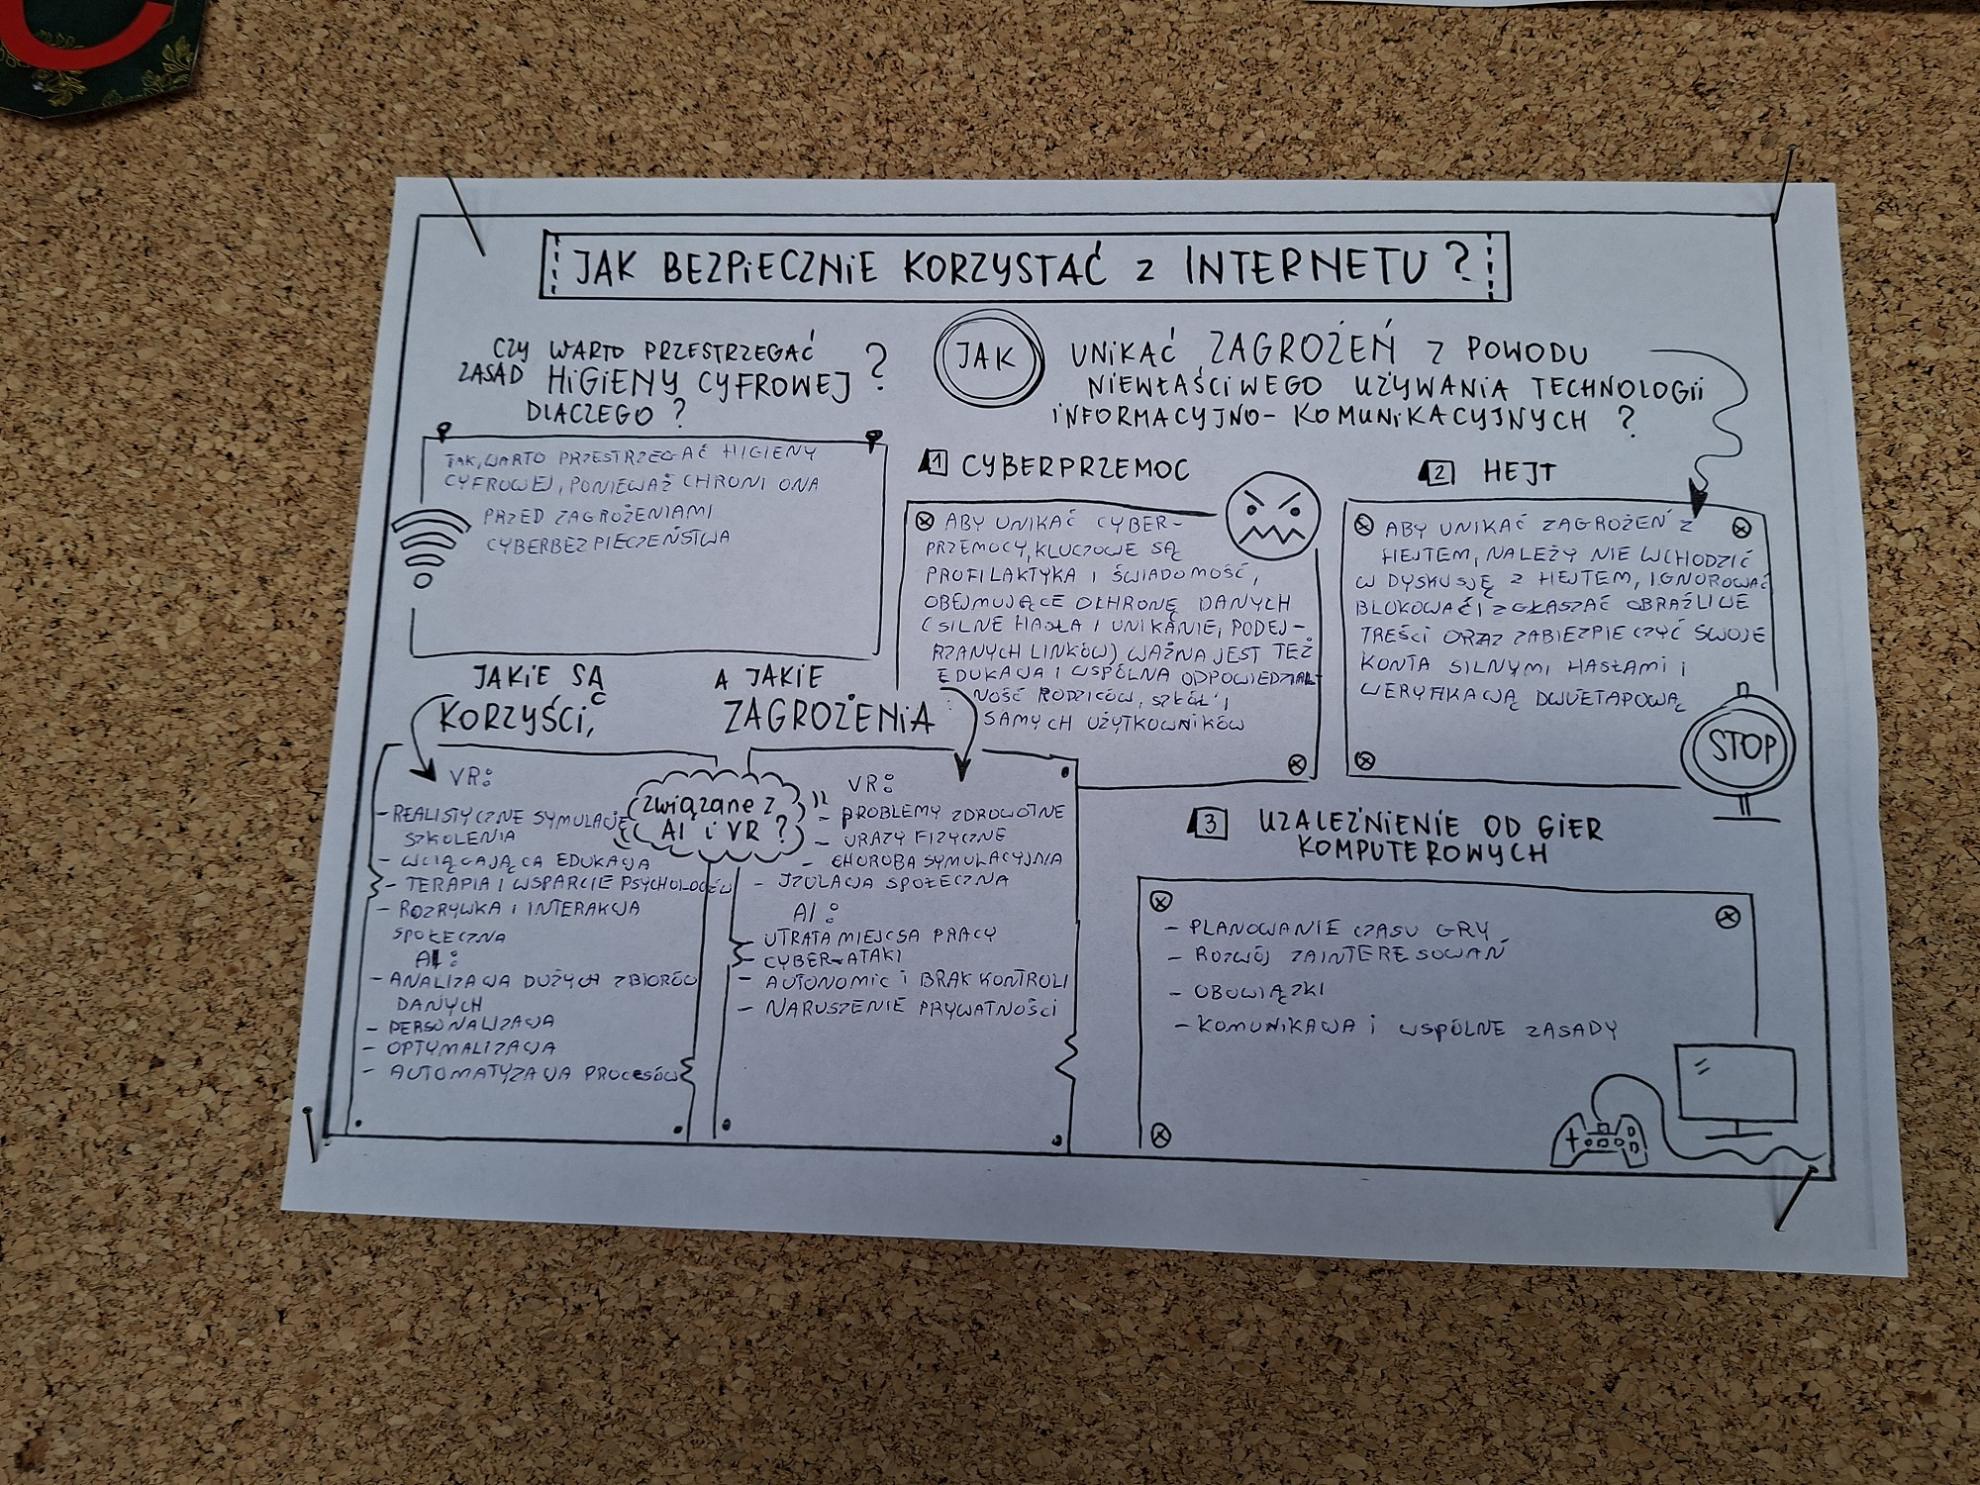 JAK BEZPIECZNIE KORZYSTAĆ z INTERNETU?
CZY WARTO PRZESTRZEGAĆ
ZASAD HIGIENY CYFROWEJ ?
DLACZEGO ?
TAK, WARTO PRZESTRZEGAĆ HIGIENY
CYFROWEJ, PONIEWAŻ CHRONI ONA
PRZED ZAGROŻENIAMI
CYBERBEZPIECZEŃSTWA
JAK UNIKAĆ ZAGROŻEŃ Z POWODU
NIEWŁAŚCIWEGO UŻYWANIA TECHNOLOGII
INFORMACYJNO-KOMUNIKACYJNYCH ?
1 CYBERPRZEMOC
ABY UNIKAĆ CYBER-
PRZEMOCY, KLUCZOWE SĄ
PROFILAKTYKA I ŚWIADOMOŚĆ,
OBEJMUJĄCE OCHRONĘ DANYCH
(SILNE HASŁA I UNIKANIE, PODEJ-
RZANYCH LINKÓW) WAŻNA JEST TEŻ
EDUKACJA I WSPÓLNA ODPOWIEDZIAL-
NOŚĆ RODZICÓW, SZKÓŁ I
SAMYCH UŻYTKOWNIKÓW
2 HEJT
ABY UNIKAĆ ZAGROŻEŃ Z
HEJTEM, NALEŻY NIE WCHODZIĆ
W DYSKUSJĘ Z HEJTEM, IGNOROWAĆ
BLOKOWAĆ I ZGŁASZAĆ OBRAŹLIWE
TREŚCI ORAZ ZABIEZPIECZYĆ SWOJE
KONTA SILNYMI HASŁAMI I
WERYFIKACJĄ DWUETAPOWĄ
STOP
JAKIE SĄ
KORZYŚCI,
A JAKIE
ZAGROŻENIA
związane z
AI i VR ?
VR:
- REALISTYCZNE SYMULACJE
SZKOLENIA
- WCIĄGAJĄCA EDUKACJA
- TERAPIA I WSPARCIE PSYCHOLOGÓW
- ROZRYWKA I INTERAKCJA
SPOŁECZNA
AI:
- ANALIZACJA DUŻYCH ZBIORÓW
DANYCH
- PERSONALIZACJA
- OPTYMALIZACJA
- AUTOMATYZACJA PROCESÓW
VR:
- PROBLEMY ZDROWOTNE
- URAZY FIZYCZNE
- CHOROBA SYMULACYJNIA
- IZOLACJA SPOŁECZNA
AI:
- UTRATA MIEJCSA PRACY
- CYBER-ATAKI
- AUTONOMIC I BRAK KONTROLI
- NARUSZENIE PRYWATNOŚCI
3 UZALEŻNIENIE OD GIER
KOMPUTEROWYCH
- PLANOWANIE CZASU GRY
- ROZWÓJ ZAINTERESOWAŃ
- OBOWIĄZKI
- KOMUNIKACJA I WSPÓLNE ZASADY